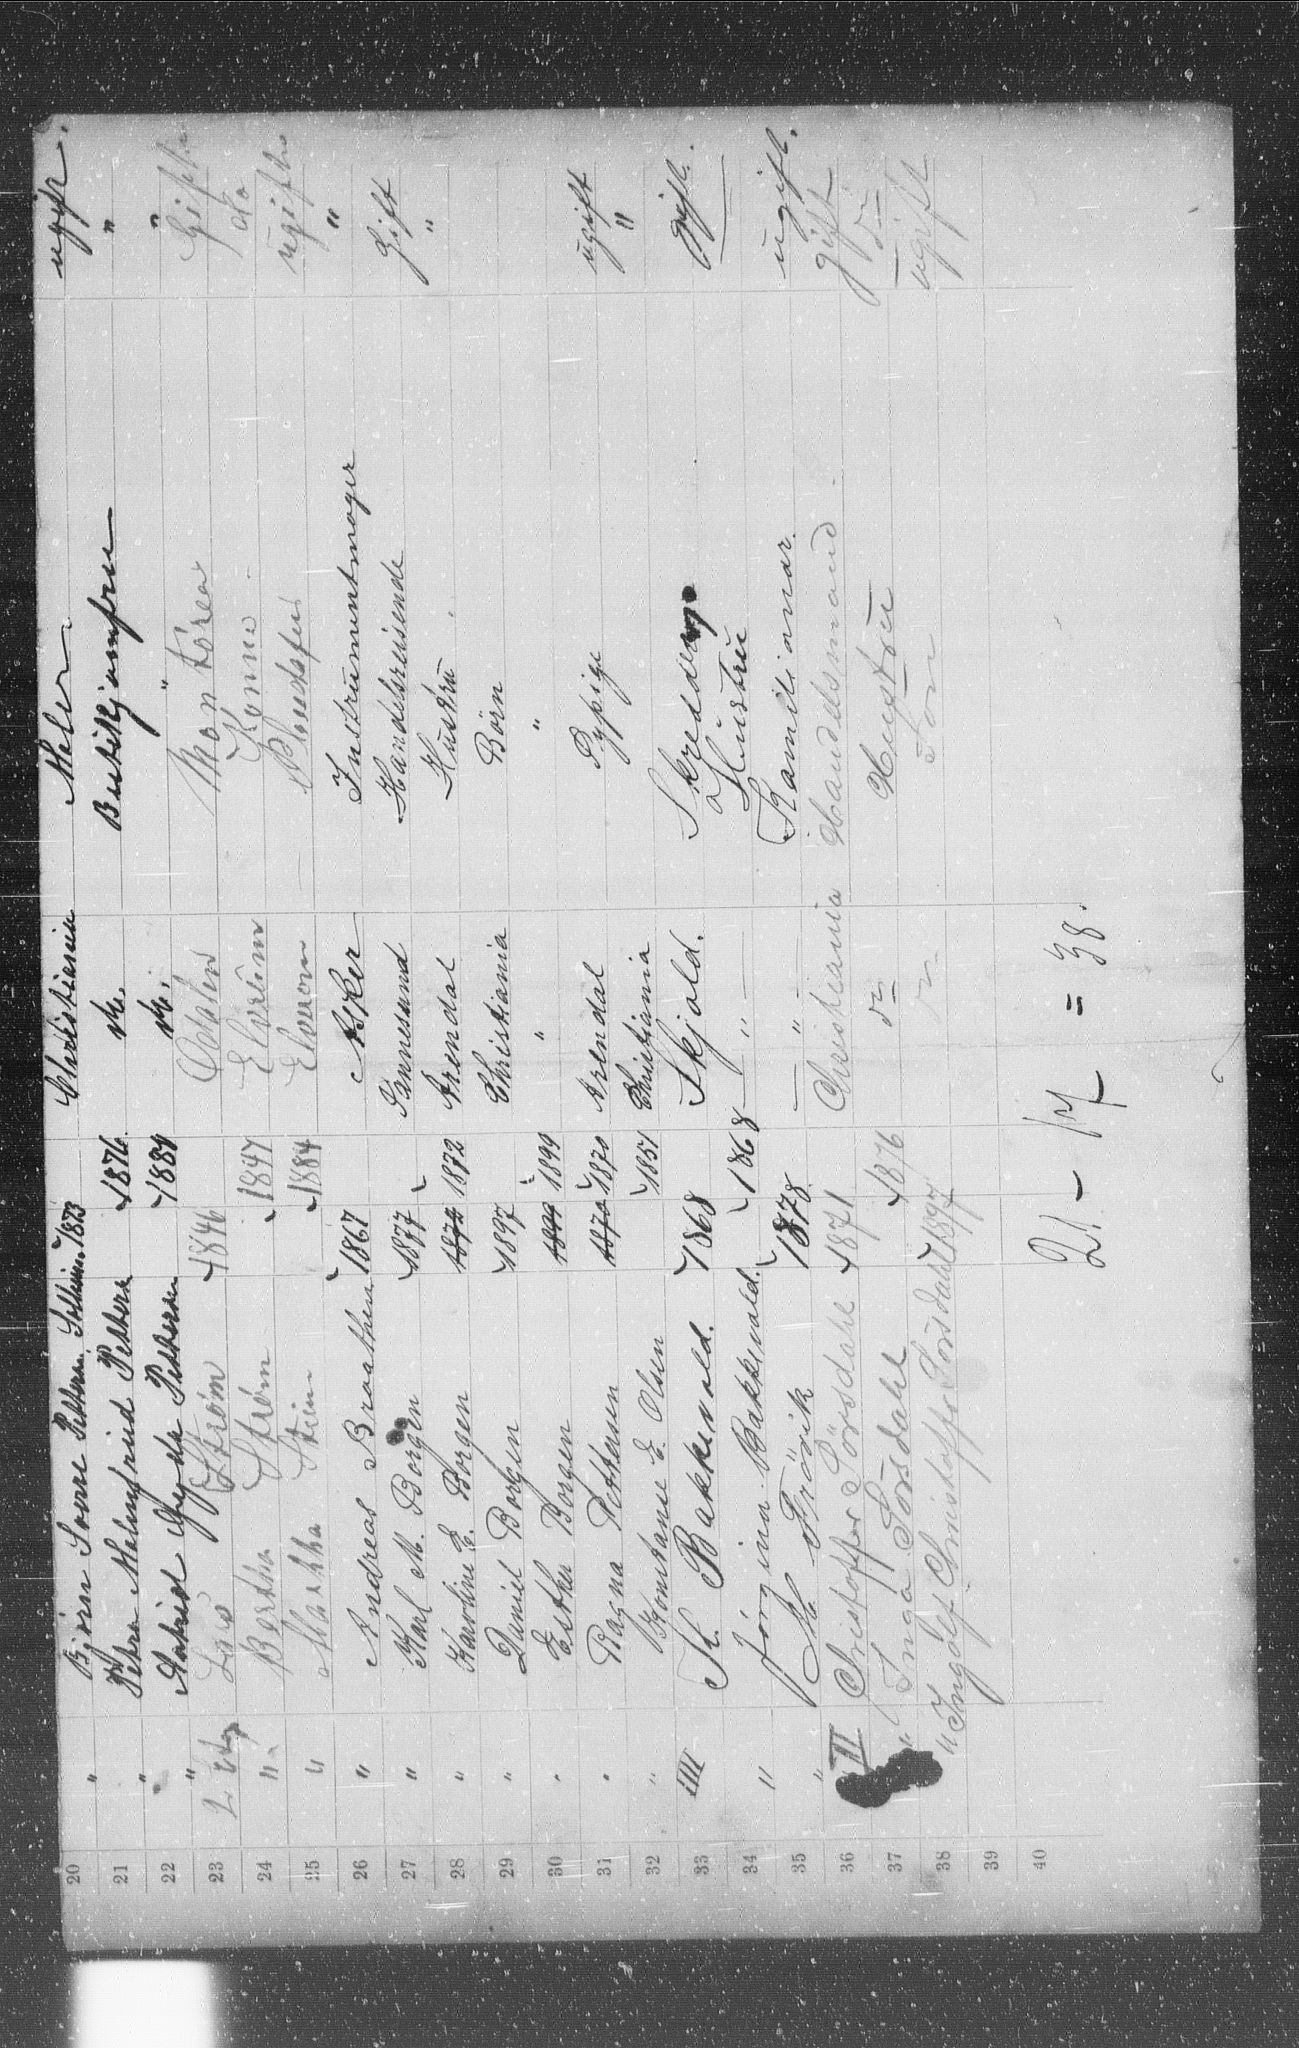 20 " Bjørn Sverre Pettersen Solheim 1873 Christiania Maler ugift.
21 " Petra Pettersen 1876. do. Butikjomfru "
22 " Astrid Gyda Pettersen 1881 do. " "
23 2 etg Lars Strøm 1846 Montör Gift
24 " Bertha Strøm 1847 Elverum Kone do
25 " Martha Strøm 1884 Elverum ugift
26 " Andreas Braathen 1867 Asker Instrumentmager "
27 " Karl M. Borgen 1877 Handelsreisende Gift
28 " Karoline E. Borgen 1872 1872 Arendal Hustru "
29 " Daniel Borgen 1897 Christiania Børn
30 " Esther Borgen 1899 1899 " "
31 " Ragna Pettersen 1870 1870 Arendal Pypige ugift
32 " Konstanse E. Olsen 1851 Christiania "
33 III K. Bakkevold. 1868 Skjold. Skredder gift.
34 " Jørgina Bakkevold. 1868 — " — Hustru
35 " 1878 — " — ugift.
36 IV Christoffer Sörsdahl 1871 Christiania Handelsmand gift
37 " Inga Sörsdahl 1876 do Hustru do
38 " Ingolf Christoffer Sörsdahl 1897 do Sön ugift
39
40
21 — 17 = 38.